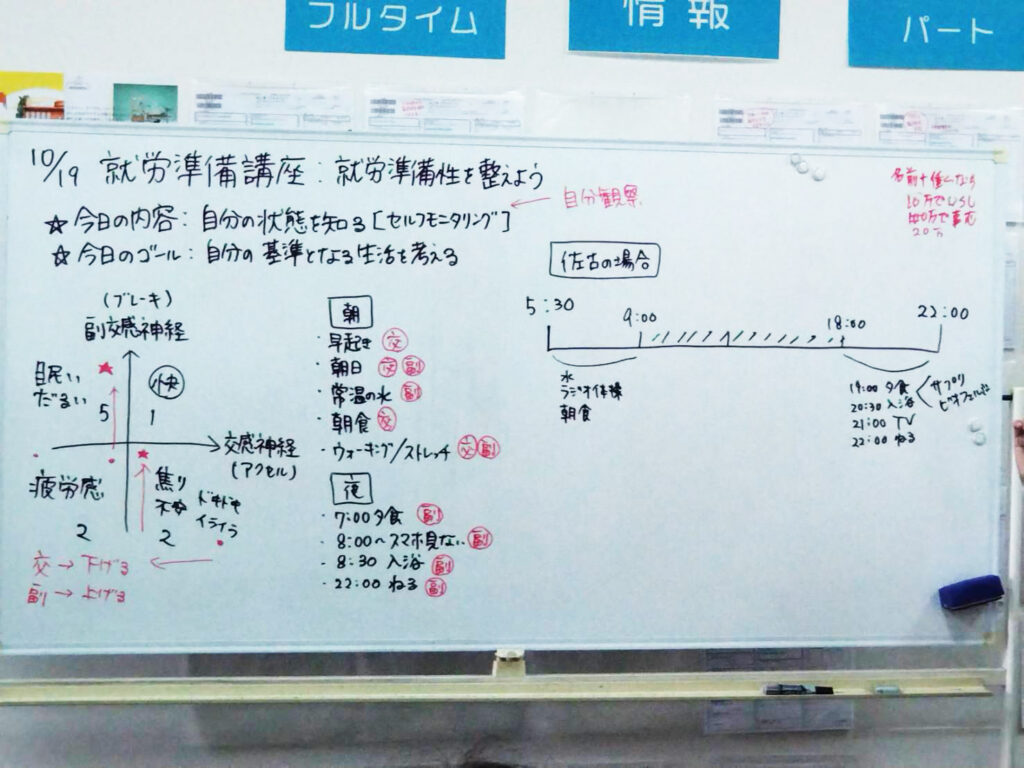 フルタイム
情報
パート
10/19 就労準備講座：就労準備性を整えよう
☆今日の内容：自分の状態を知る[セルフモニタリング]
← 自分観察
☆今日のゴール：自分の基準となる生活を考える
(ブレーキ)
副交感神経
眠い
だるい
5
快
1
交感神経
(アクセル)
疲労感
2
焦り
不安
ドキドキ
イライラ
2
交→下げる ←
副→上げる
朝
・早起き 交
・朝日 交 副
・常温の水 副
・朝食 交
・ウォーキング/ストレッチ 交 副
夜
・7:00夕食 副
・8:00〜スマホ見ない 副
・8:30 入浴 副
・22:00 ねる 副
佐古の場合
5:30
9:00
18:00
22:00
水
ラジオ体操
朝食
19:00 夕食
20:30 入浴
21:00 TV
22:00 ねる
サプリ
20万